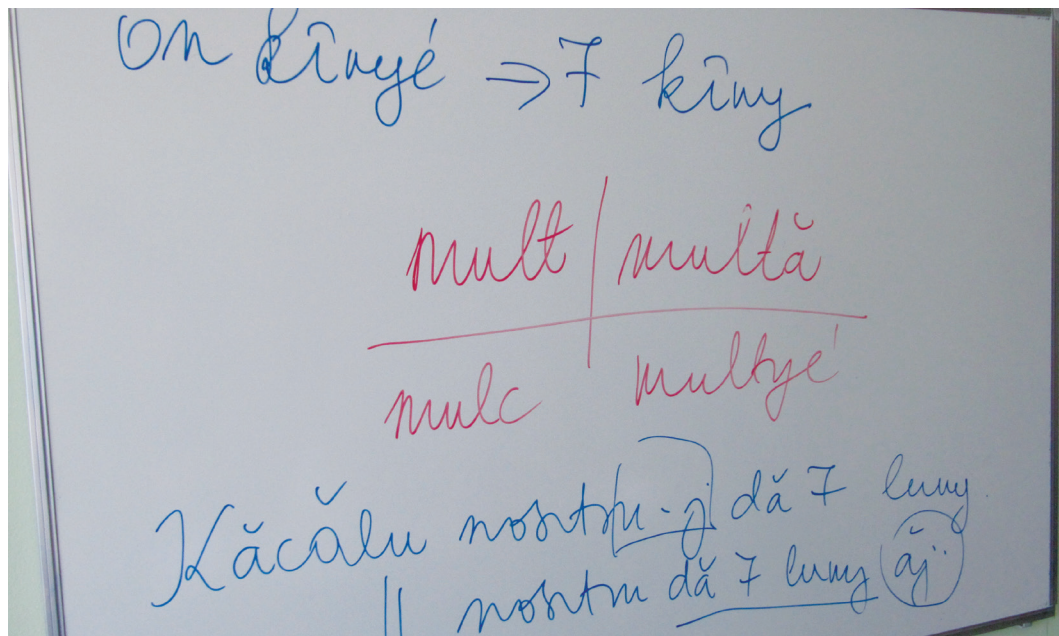 On kînyé ⇒ 7 kîny
mult | multă
mulc multyé
Kăcălu nostru-j dă 7 luny.
|| nostru dă 7 luny ăj